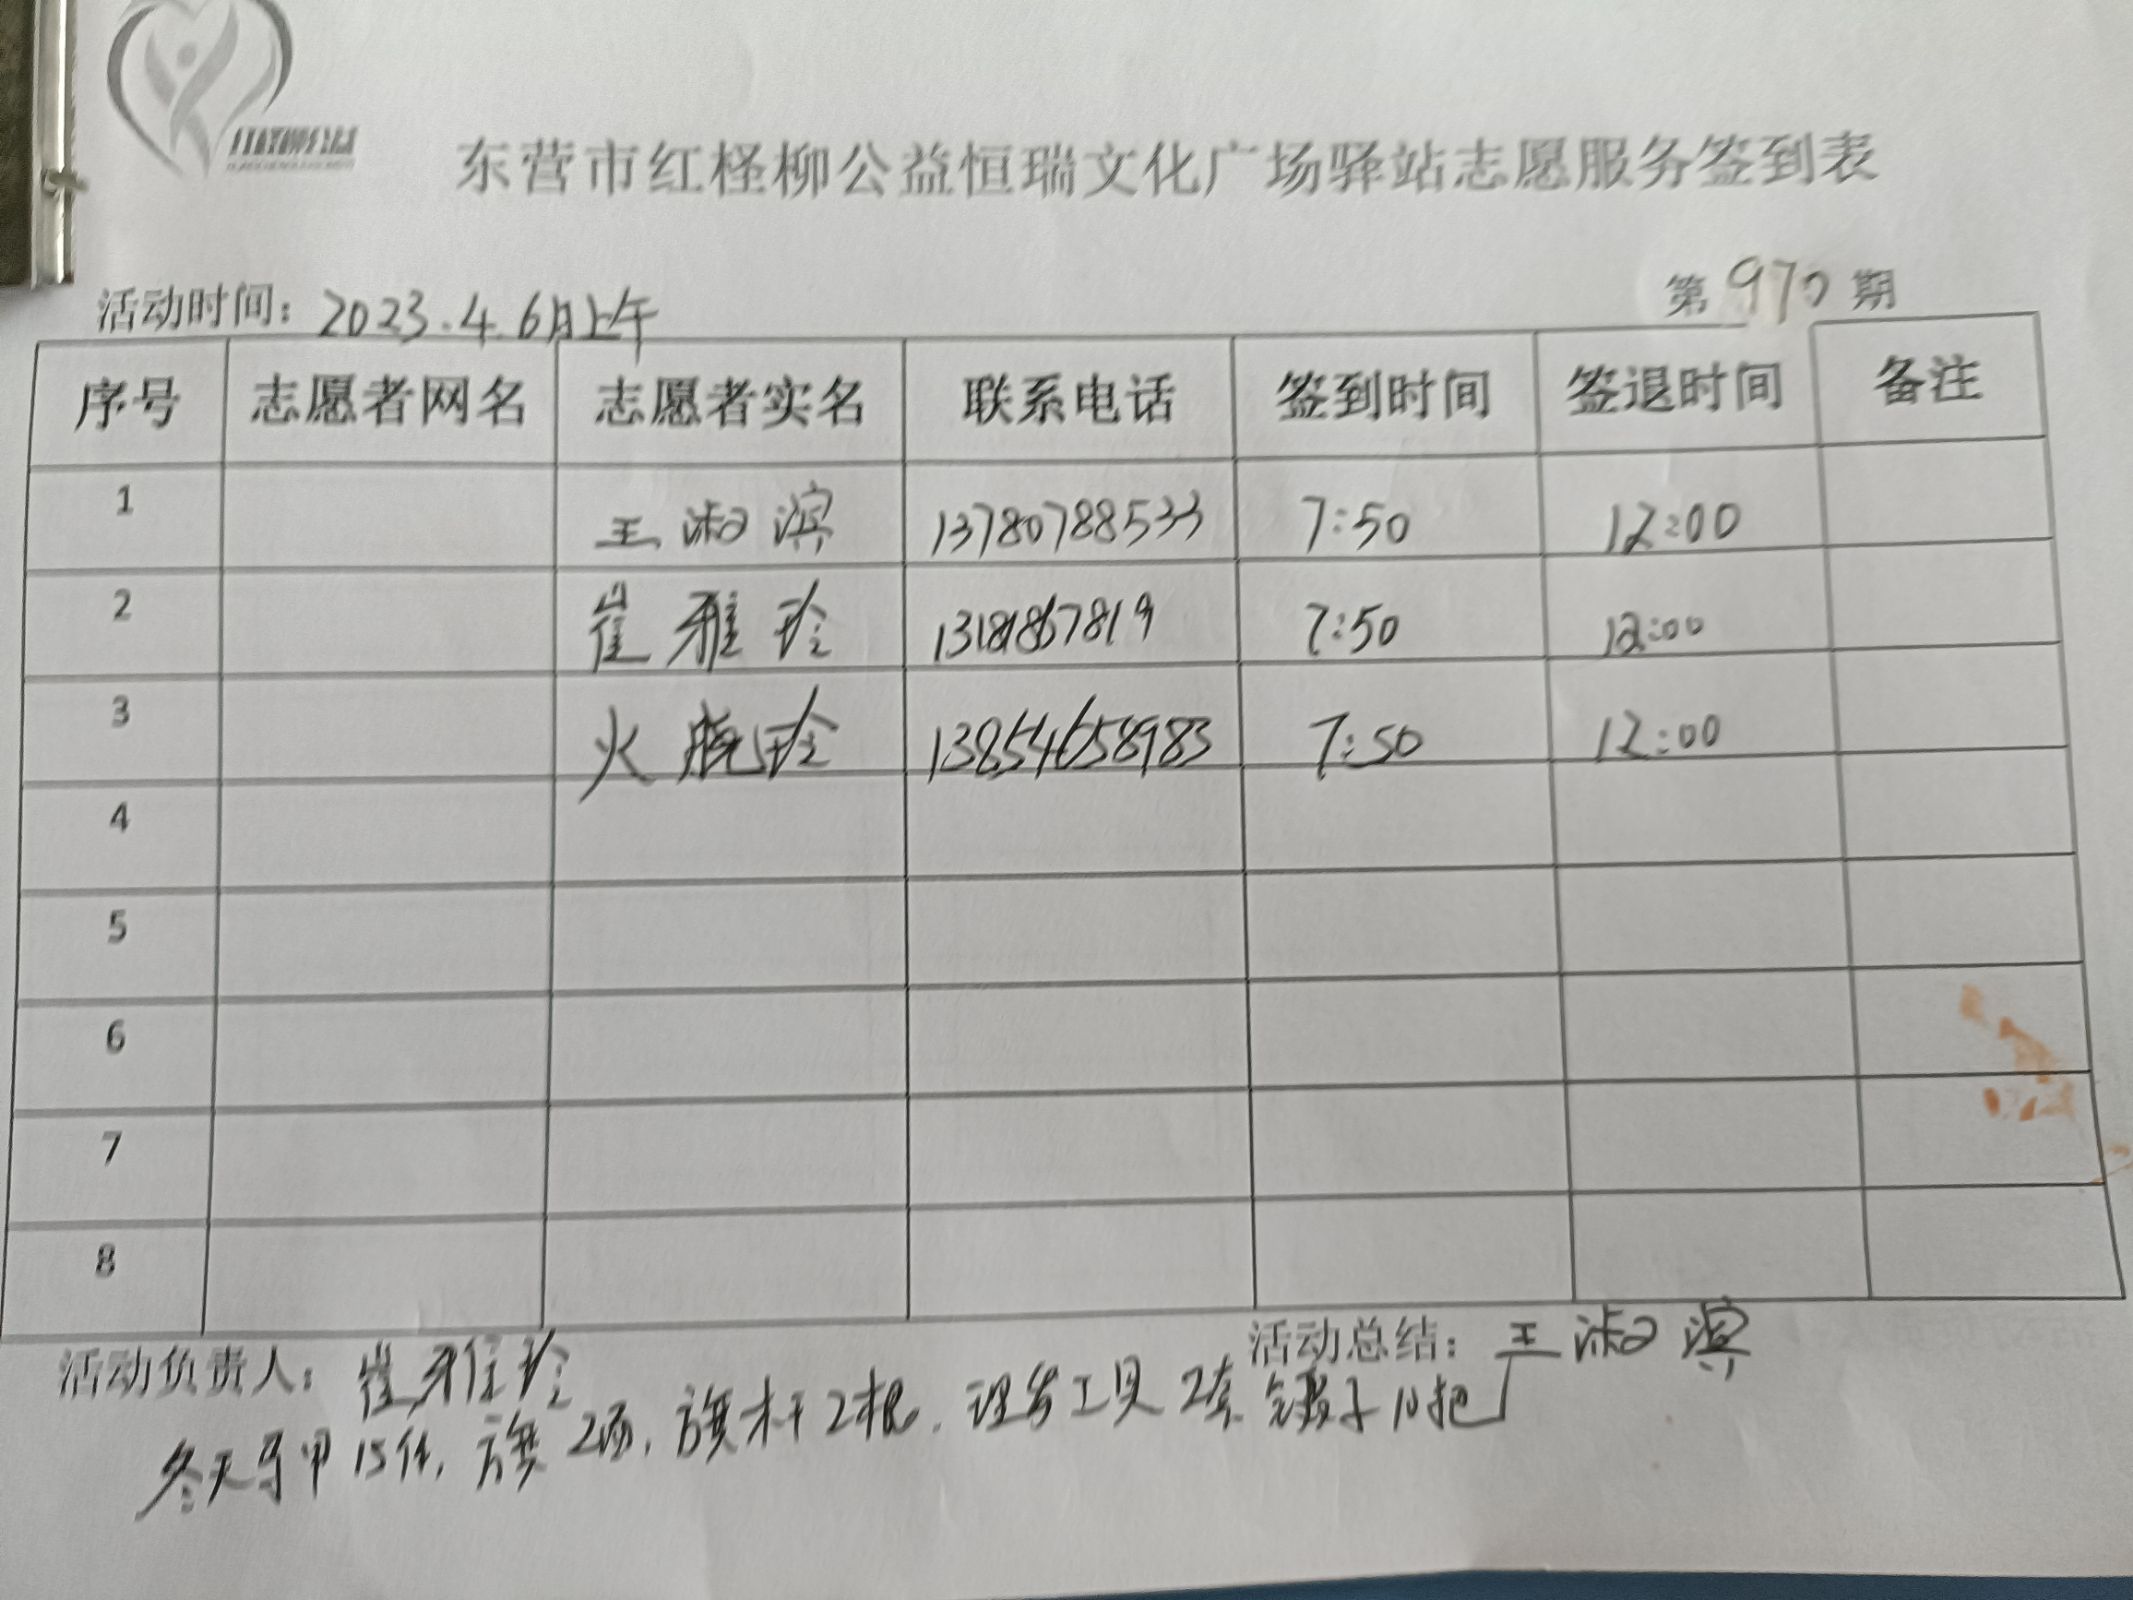 东营市红柽柳公益恒瑞文化广场驿站志愿服务签到表
活动时间：2023.4.6日上午 第970期
序号 志愿者网名 志愿者实名 联系电话 签到时间 签退时间 备注
1 王淑滨 13780788533 7:50 12:00
2 崔雅玲 7:50 12:00
3 火晓玲 13854658983 7:50 12:00
4
5
6
7
8
活动负责人：崔雅玲 活动总结：王淑滨
冬天马甲15件，旗2面，旗杆2根，理发工具2套 镊子10把